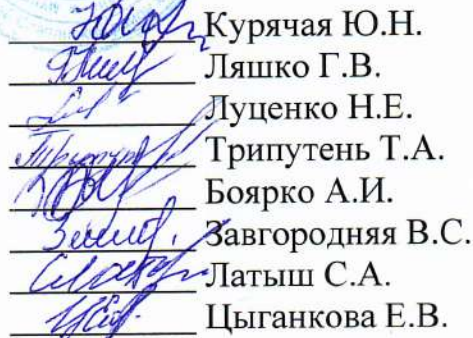 Курячая Ю.Н.
Ляшко Г.В.
Луценко Н.Е.
Трипутень Т.А.
Боярко А.И.
Завгородняя В.С.
Латыш С.А.
Цыганкова Е.В.